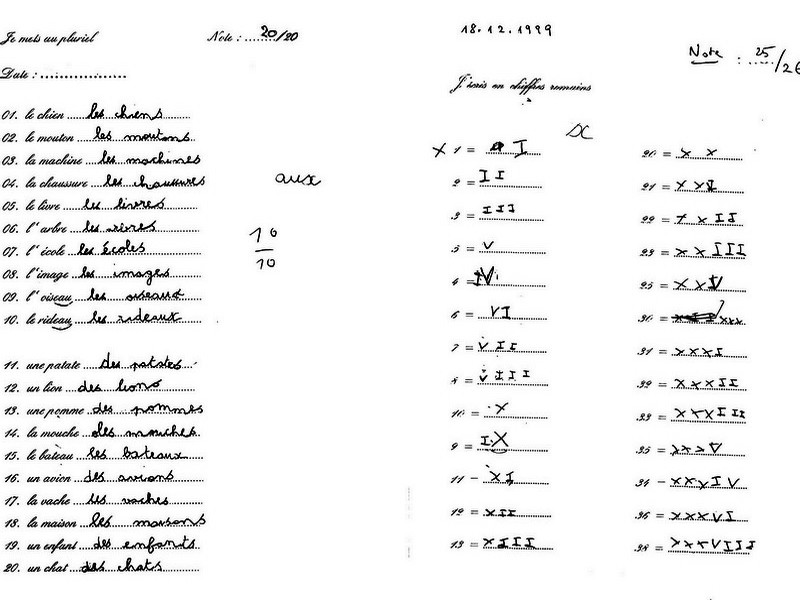 Je mets au pluriel
Note : 20/20
Date : ..................
01. le chien les chiens
02. le mouton les moutons
03. la machine les machines
04. la chaussure les chaussures
05. le livre les livres
06. l'arbre les
07. l'école les écoles
08. l'image les images
09. l'oiseau les oiseaux
10. le rideau les rideaux
11. une patate des patates
12. un lion des lions
13. une pomme des pommes
14. la mouche les mouches
15. le bateau les bateaux
16. un avion des avions
17. la vache les vaches
18. la maison les maisons
19. un enfant des enfants
20. un chat des chats
aux
10
10
18.12.1999
Note : 25/26
J'écris en chiffres romains
X 1 = I
2 = II
3 = III
5 = V
4 = IV
6 = VI
7 = VII
8 = VIII
10 = X
9 = IX
11 = XI
12 = XII
13 = XIII
20 = XX
21 = XXI
22 = XXII
23 = XXIII
25 = XXV
30 = XXX
31 = XXXI
32 = XXXII
33 = XXXIII
35 = XXXV
34 = XXXIV
36 = XXXVI
38 = XXXVIII